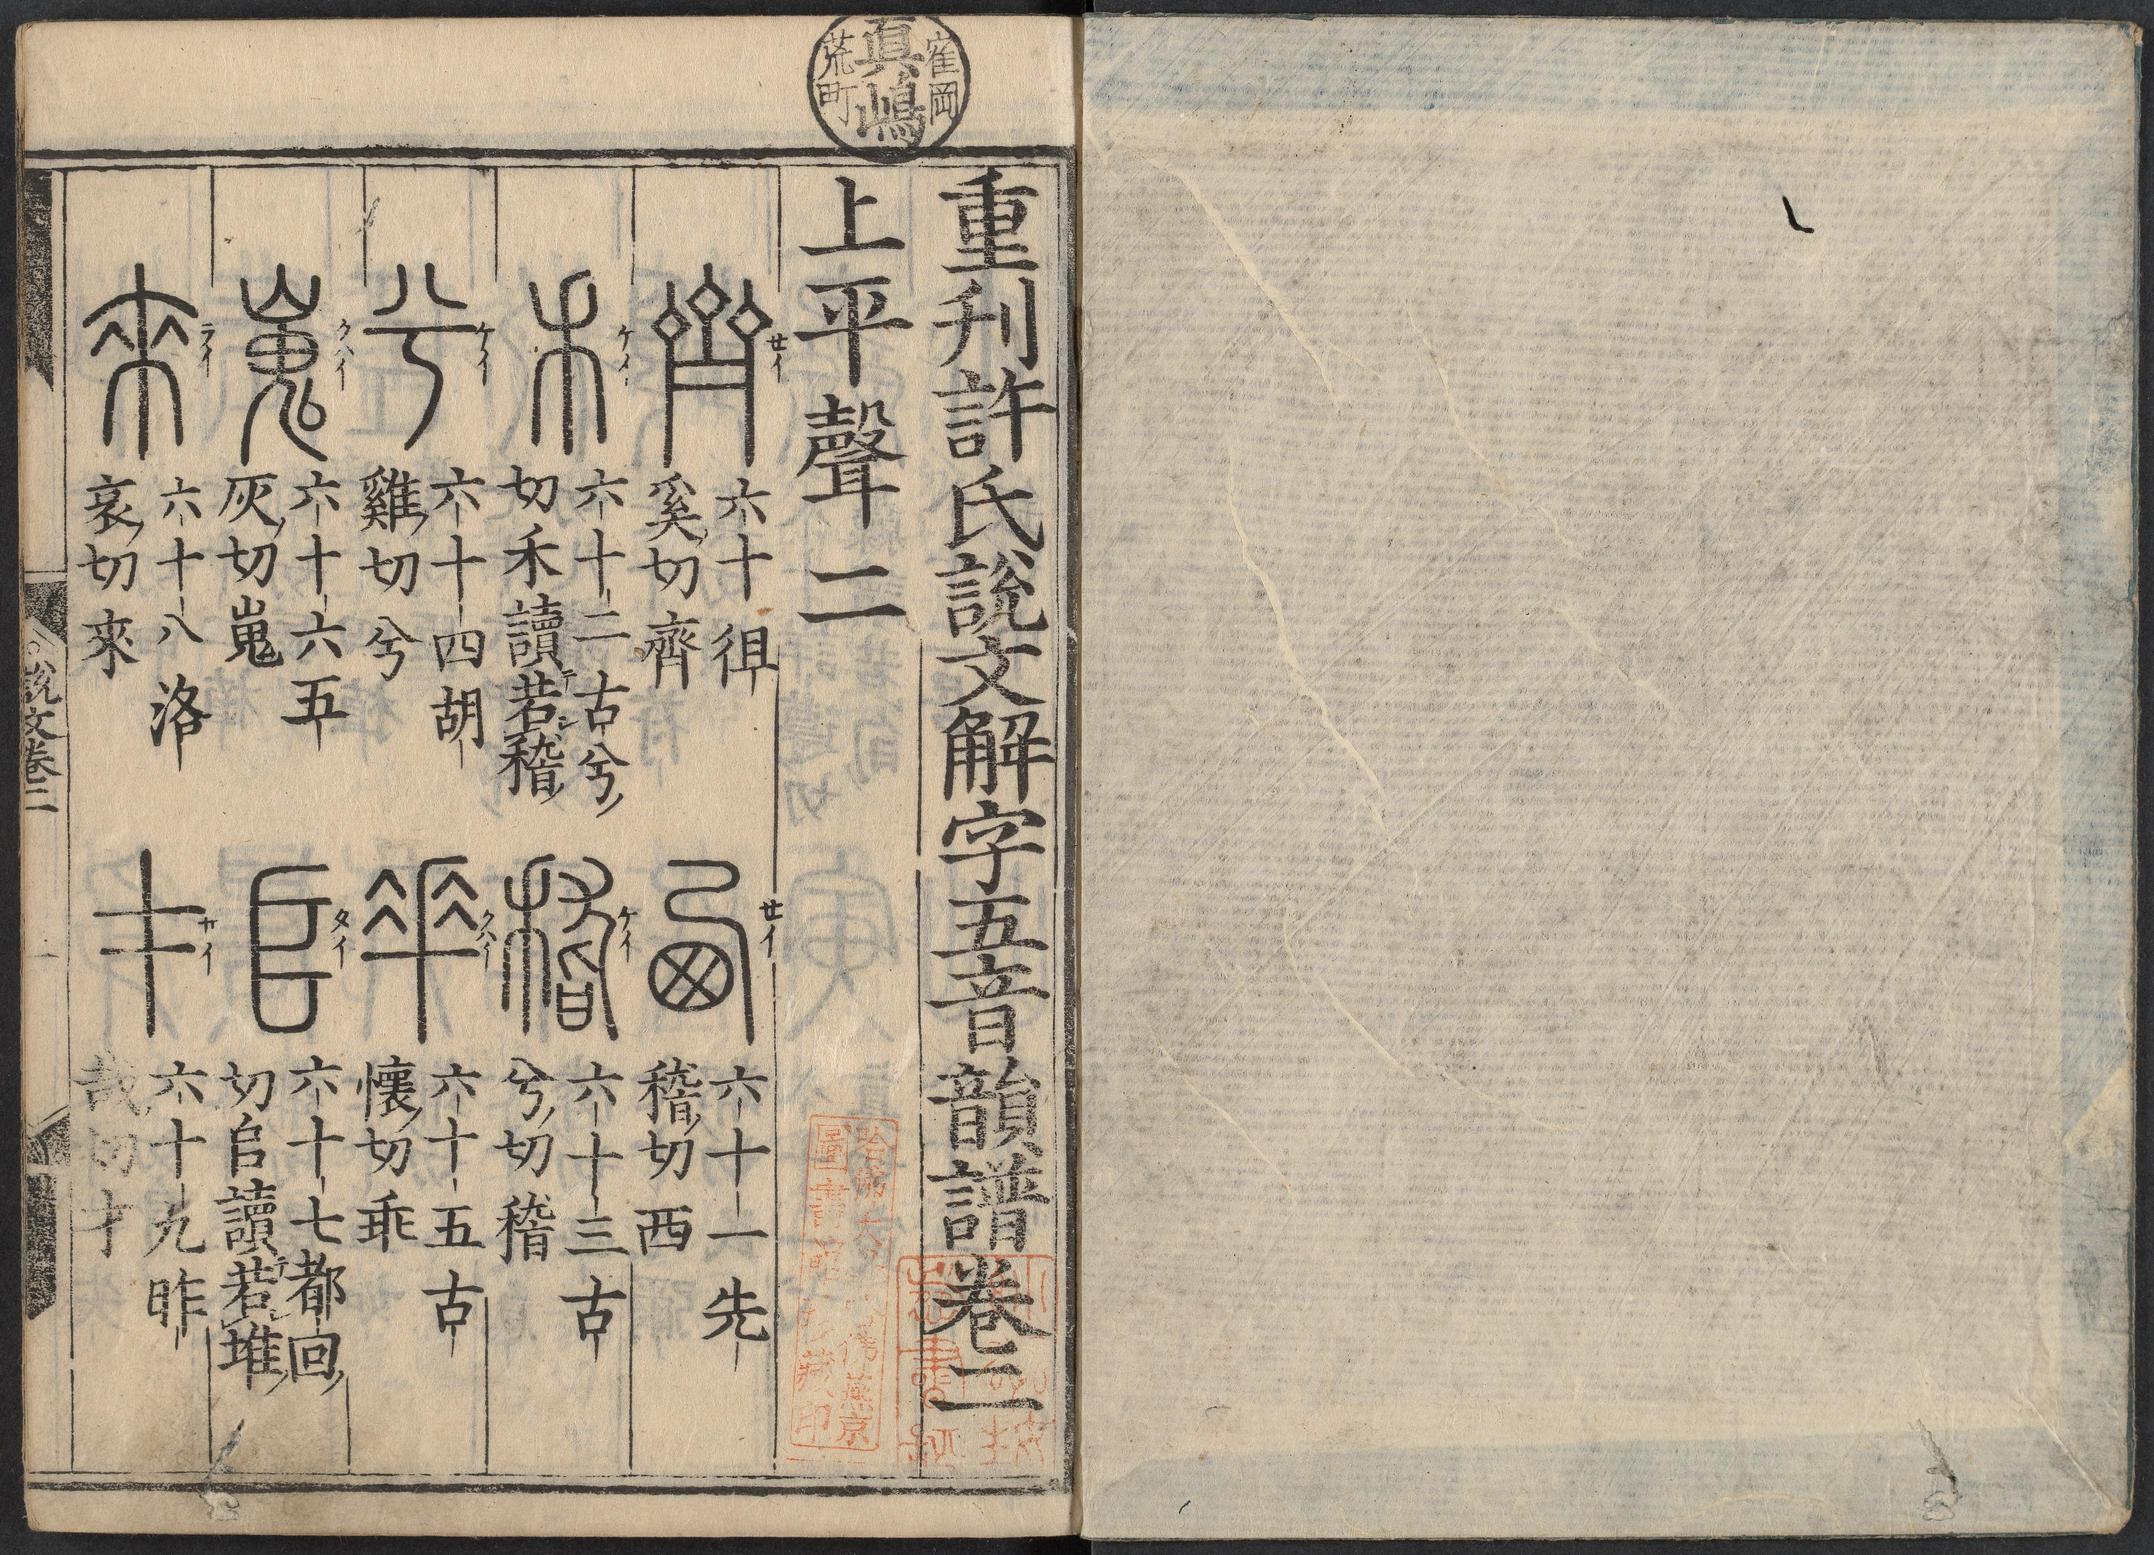 寉岡
眞嶋
荒町
重刊許氏說文解字五音韻譜卷二
上平聲二
齊 サイ
六十徂
奚切齊
西 サイ
六十一先
稽切西
禾 ケイ
六十二古兮
切禾讀若稽
稽 ケイ
六十三古
兮切稽
兮 ケイ
六十四胡
雞切兮
乖 クハイ
六十五古
懷切乖
嵬 クハイ
六十六五
灰切嵬
𠂤 タイ
六十七都回
切𠂤讀若堆
來 ライ
六十八洛
哀切來
才 サイ
六十九昨
哉切才
說文卷二
一
哈佛大學哈佛燕京
圖書館珍藏印